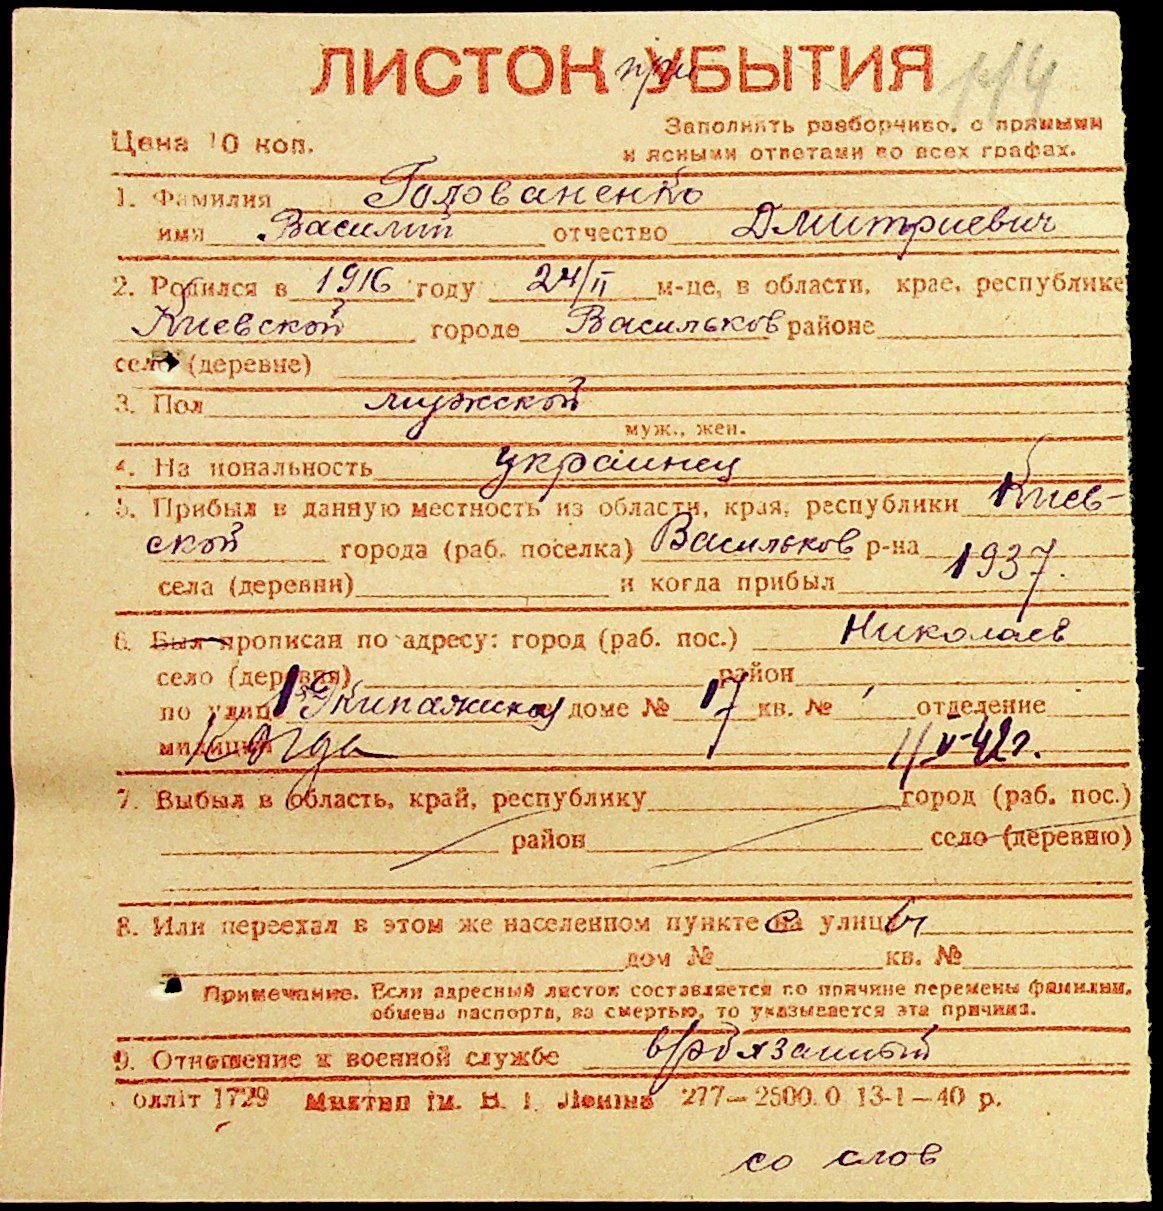 ЛИСТОК при УБЫТИЯ 144
Цена 10 коп.
Заполнять разборчиво, с прямыми
и ясными ответами во всех графах.
1. Фамилия Голованенко
имя Василий отчество Дмитриевич
2. Родился в 1916 году 24/II м-це, в области, крае, республике
Киевской городе Васильков районе
село (деревне)
3. Пол мужской
муж., жен.
4. На иональность украинец
5. Прибыл в данную местность из области, края, республики Киев-
ской города (раб. поселка) Васильков р-на
села (деревни) и когда прибыл 1937.
6. Был прописан по адресу: город (раб. пос.) Николаев
село (деревня) район
по улиц 1 Экипажиская доме № 17 кв. № отделение
милиции Когда 11/V-42 г.
7. Выбыл в область, край, республику город (раб. пос.)
район село (деревню)
8. Или переехал в этом же населенном пункте с на улицы
дом № кв. №
Примечание. Если адресный листок составляется по причине перемены фамилии,
обмена паспорта, за смертью, то указывается эта причина.
9. Отношение к военной службе в/обязанный
олліт 1729 Миктип ім. В. І. Леніна 277—2500.0 13-1—40 р.
со слов